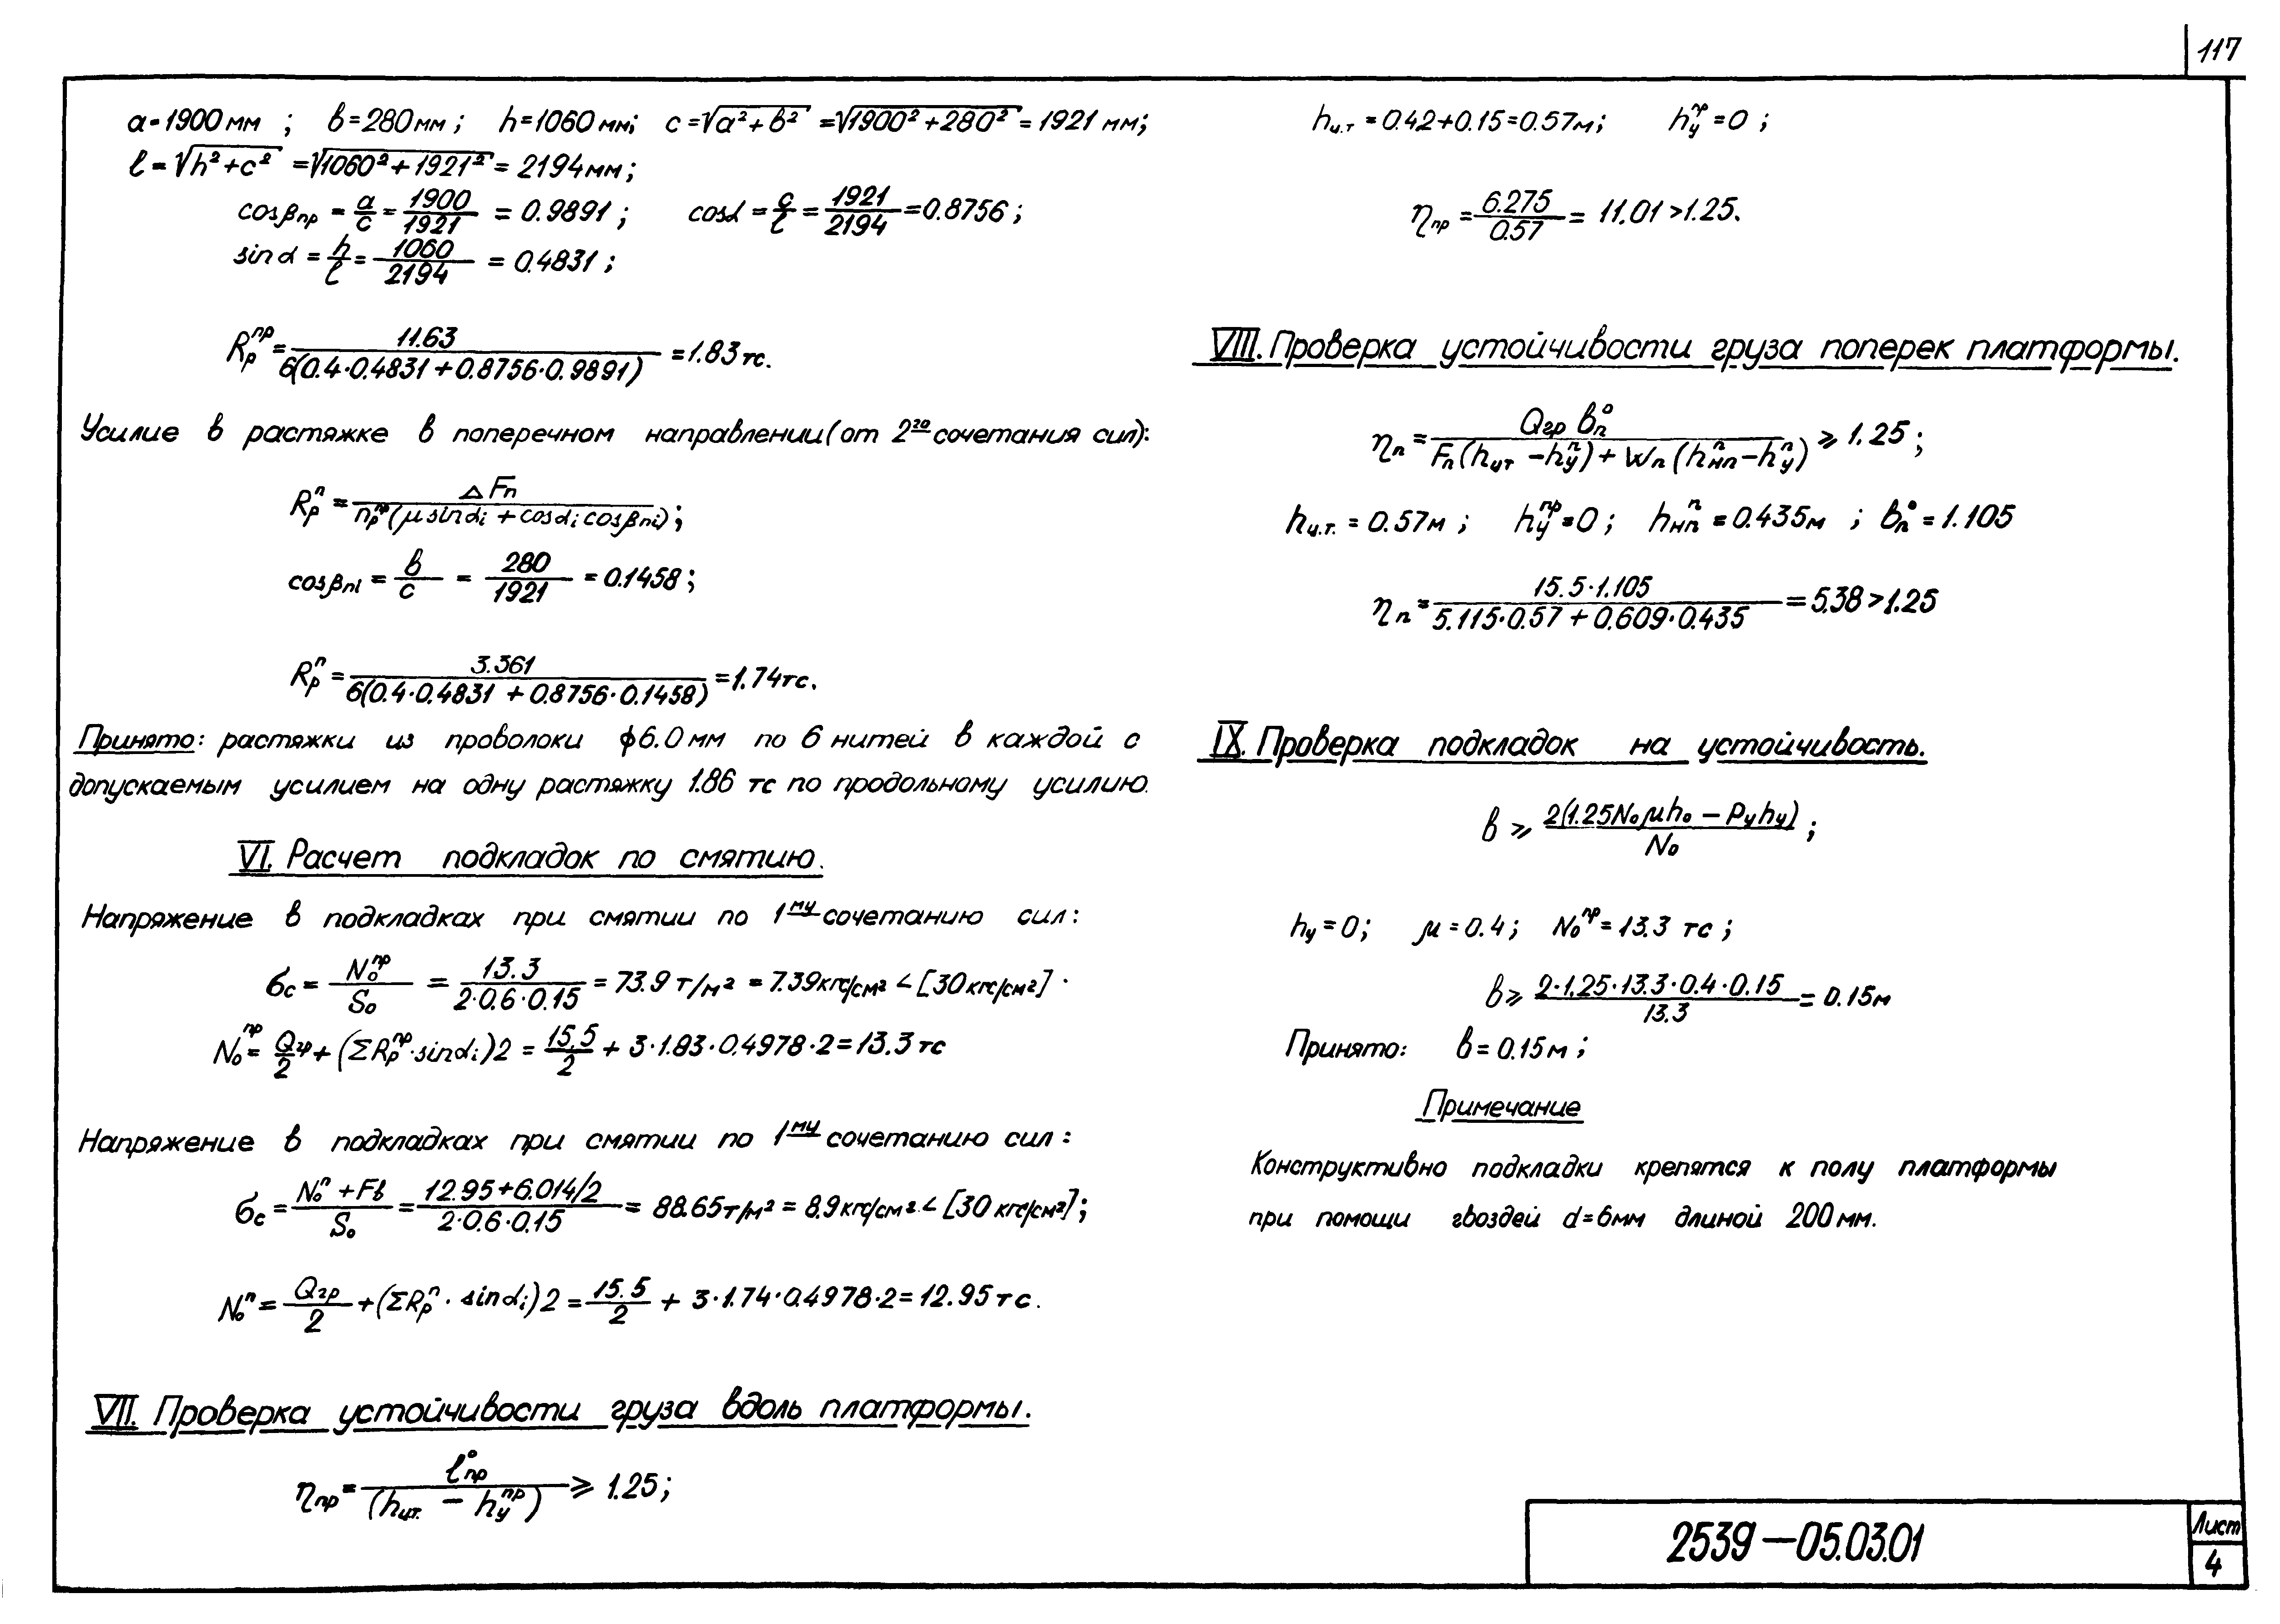 117
a=1900 мм ; в=280 мм ; h=1060 мм; c=√(a²+в²) =√(1900²+280²) = 1921 мм;
ℓ=√(h²+c²) =√(1060²+1921²) = 2194 мм;
cosβпр = a/c = 1900/1921 = 0.9891 ; cosα = c/ℓ = 1921/2194 = 0.8756 ;
sin α = h/ℓ = 1060/2194 = 0.4831 ;
Rрпр = 11.63 / 6(0.4·0.4831+0.8756·0.9891) = 1.83 тс.
Усилие в растяжке в поперечном направлении (от 2го сочетания сил):
Rрп = ΔFп / nрпр(μ sinαi + cosαi cosβпi) ;
cosβпi = в/c = 280/1921 = 0.1458 ;
Rрп = 3.361 / 6(0.4·0.4831 + 0.8756·0.1458) = 1.74тс.
Принято: растяжки из проволоки ϕ6.0 мм по 6 нитей в каждой с
допускаемым усилием на одну растяжку 1.86 тс по продольному усилию.
VI. Расчет подкладок по смятию.
Напряжение в подкладках при смятии по 1му сочетанию сил:
бс = N₀пр/S₀ = 13.3 / 2·0.6·0.15 = 73.9 т/м² = 7.39кгс/см² < [30кгс/см²] .
N₀пр = Qгр/2 + (ΣRрпр·sinαi)2 = 15.5/2 + 3·1.83·0.4978·2=13.3 тс
Напряжение в подкладках при смятии по 1му сочетанию сил:
бс = N₀п +Fв / S₀ = 12.95+6.014/2 / 2·0.6·0.15 = 88.65т/м² = 8.9кгс/см² < [30 кгс/см²];
N₀п = Qгр/2 + (ΣRрп · sinαi)2 = 15.5/2 + 3·1.74·0.4978·2= 12.95 тс.
VII. Проверка устойчивости груза вдоль платформы.
ηпр = ℓ°пр / (hцт. – hупр) ⩾ 1.25;
hц.т = 0.42+0.15=0.57м; hупр=0 ;
ηпр = 6.275/0.57 = 11.01 >1.25.
VIII. Проверка устойчивости груза поперек платформы.
ηп = Qгр в°п / Fп(hцт – hуп) + Wп(hнпп–hуп) ⩾ 1.25 ;
hц.т. = 0.57м ; hупр=0 ; hнпп = 0.435м ; вп° = 1.105
ηп = 15.5·1.105 / 5.115·0.57 + 0.609·0.435 = 5.38 >1.25
IX. Проверка подкладок на устойчивость.
в ⩾ 2(1.25N₀μh₀ – Pуhу) / N₀ ;
hу=0; μ=0.4; N₀пр=13.3 тс ;
в⩾ 2·1.25·13.3·0.4·0.15 / 13.3 = 0.15м
Принято: в=0.15м ;
Примечание
Конструктивно подкладки крепятся к полу платформы
при помощи гвоздей d=6мм длиной 200мм.
2539–05.03.01
Лист
4